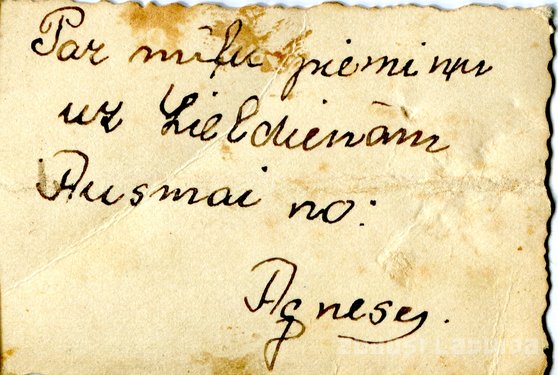 Par mīļu piemiņu
uz Lieldienām
Ausmai no:
Agneses.